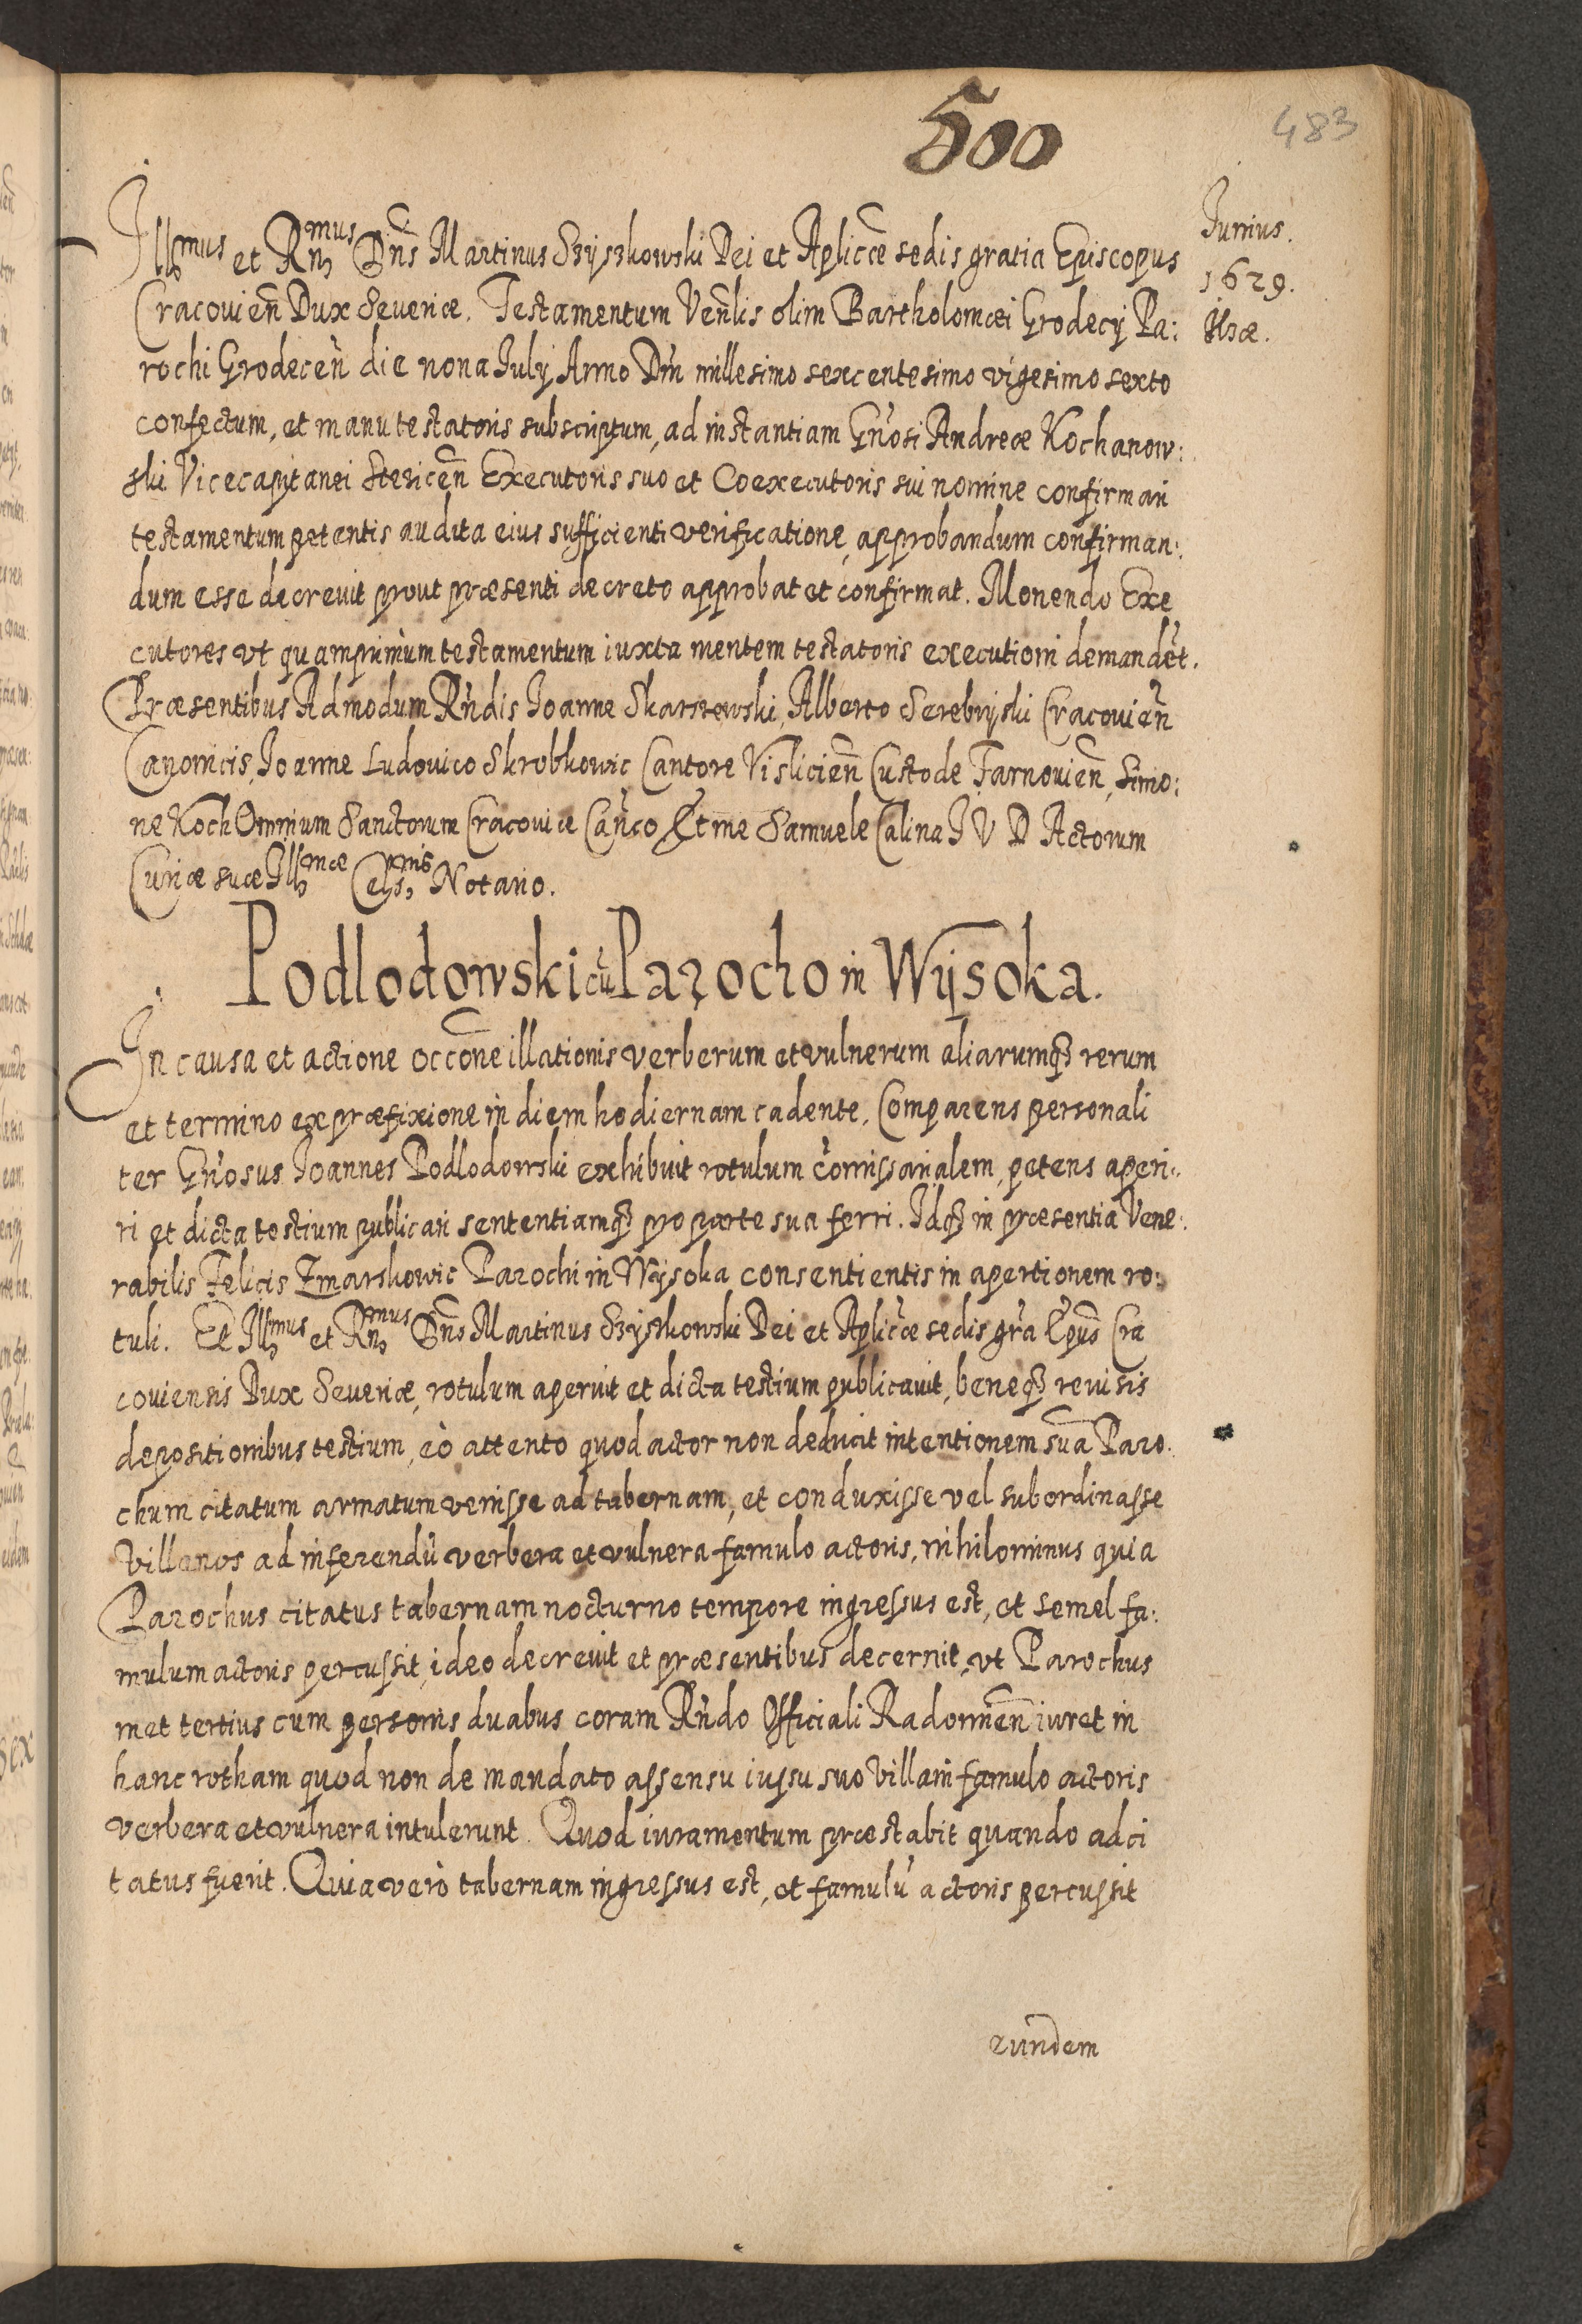 500
483
Junius.
1629.
Ilzæ.
Illmus et Rnmus Dns Martinus Szyszkowski Dei et Aplicæ sedis gratia Episcopus
Cracovien Dux Severiæ. Testamentum Venlis olim Bartholomæi Grodecij Pa:
rochi Grodecen die nona Julij Anno Dni millesimo sexcentesimo vigesimo sexto
confectum, et manu testatoris subscriptum, ad instantiam Gnosi Andreæ Kochanow:
ski Vicecapitanei Executoris suo et Coexecutoris sui nomine confirmari
testamentum petentis audita eius sufficienti verificatione, approbandum confirman:
dum esse decrevit prout præsenti decreto approbat et confirmat. Monendo Exe
cutores vt quamprimùm testamentum iuxta mentem testatoris executioni demandet.
Præsentibus Admodum Rndis Joanne Skarszewski, Alberto Serebryski Cracovien
Canonicis, Joanne Ludovico Skrobkowic Cantore Vislicien Custode Tarnovien, Simo:
ne Koch Omnium Sanctorum Cracoviæ Canco Et me Samuele Calina J V D Actorum
Curiæ suæ Illmæ Celsnis Notario.
Podlodowski cu Parocho in Wysoka.
In causa et actione occone illationis verberum et vulnerum aliarumq3 rerum
et termino ex præfixione in diem hodiernam cadente. Comparens personali
ter Gnosus Joannes Podlodowski exhibuit rotulum comissarialem, petens aperi:
ri et dicta testium publicari sententiamq3 pro parte sua ferri. Idq3 in præsentia Vene:
rabilis Felicis Zmarskowic Parochi in Wysoka consentientis in apertionem ro:
tuli. Et Illmus et Rnmus Dns Martinus Szyszkowski Dei et Aplicæ sedis gra Epus Cra
coviensis Dux Severiæ, rotulum aperuit et dicta testium publicavit, beneq3 revisis
depositionibus testium, eò attento quod actor non deducit intentionem sua Paro:
chum citatum armatum venisse ad tabernam, et conduxisse vel subordinasse
Villanos ad inferendu verbera et vulnera famulo actoris, nihilominus quia
Parochus citatus tabernam nocturno tempore ingressus est, et semel fa:
mulum actoris percussit, ideo decrevit et præsentibus decernit, vt Parochus
met tertius cum personis duabus coram Rndo Officiali Radomien iuret in
hanc rotham quod non de mandato assensu iussu suo villani famulo actoris
verbera et vulnera intulerunt. Quod iuramentum præstabit quando adci
tatus fuerit. Quia verò tabernam ingressus est, et famulu actoris percussit
eundem